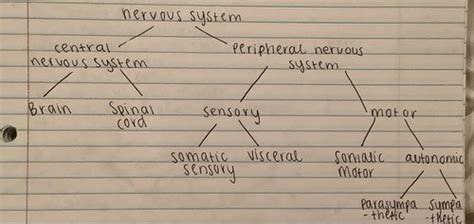 nervous system
central
nervous system
Peripheral nervous
system
Brain
Spinal
cord
sensory
motor
somatic
sensory
visceral
Somatic
Motor
autonomic
Parasympa
-thetic
Sympa
-thetic